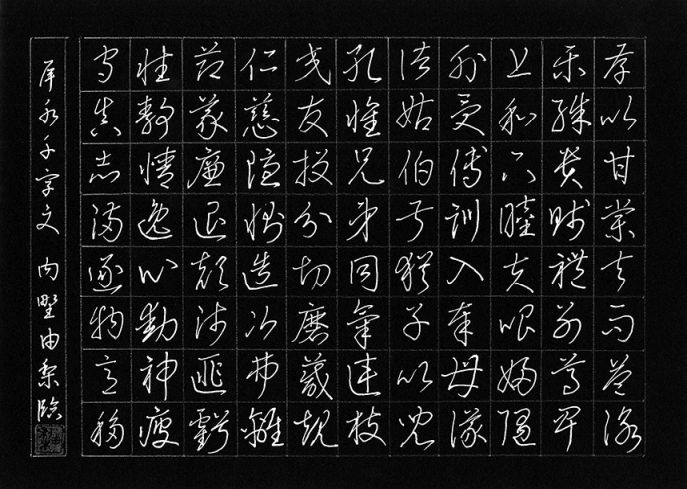 存以甘棠去而益詠
樂殊貴賤禮別尊卑
上和下睦夫唱婦隨
外受傅訓入奉母儀
諸姑伯叔猶子比兒
孔懷兄弟同氣連枝
交友投分切磨箴規
仁慈隱惻造次弗離
節義廉退顛沛匪虧
性靜情逸心動神疲
守真志滿逐物意移
智永千字文 内野由梨臨